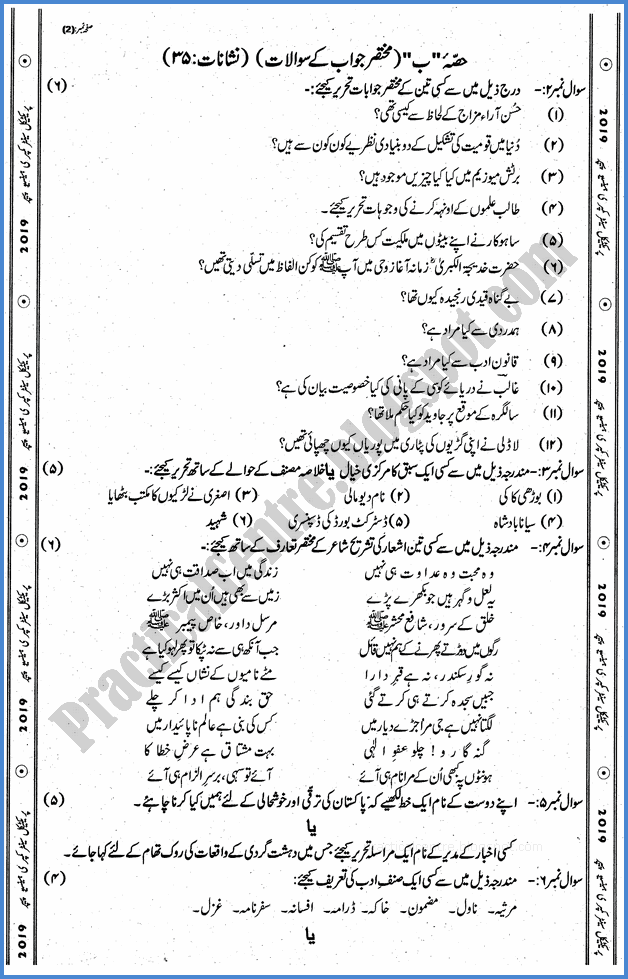 صفحہ نمبر:(2)
حصّہ "ب" (مختصر جواب کے سوالات) (نشانات:۳۵)
سوال نمبر۲:- درج ذیل میں سے کسی تین کے مختصر جوابات تحریر کیجئے:- (۶)
(۱) حُسن آراء مزاج کے لحاظ سے کیسی تھی؟
(۲) دُنیا میں قومیت کی تشکیل کے دو بنیادی نظریے کون کون سے ہیں؟
(۳) برٹش میوزیم میں کیا کیا چیزیں موجود ہیں؟
(۴) طالب علموں کے اونہہ کرنے کی وجوہات تحریر کیجئے۔
(۵) ساہوکار نے اپنے بیٹوں میں ملکیت کس طرح تقسیم کی؟
(۶) حضرت خدیجۃ الکبریٰؓ زمانہ آغازِ وحی میں آپ ﷺ کو کن الفاظ میں تسلّی دیتی تھیں؟
(۷) بے گناہ قیدی رنجیدہ کیوں تھا؟
(۸) ہمدردی سے کیا مراد ہے؟
(۹) قانونِ ادب سے کیا مراد ہے؟
(۱۰) غالب نے دریائے کوسی کے پانی کی کیا خصوصیت بیان کی ہے؟
(۱۱) سالگرہ کے موقع پر جاوید کو کیا حکم ملا تھا؟
(۱۲) لاڈلی نے اپنی گڑیوں کی پٹاری میں پوریاں کیوں چھپائی تھیں؟
سوال نمبر۳:- مندرجہ ذیل میں سے کسی ایک سبق کا مرکزی خیال یا خلاصہ مصنف کے حوالے کے ساتھ تحریر کیجئے:- (۵)
(۱) بوڑھی کاکی (۲) نام دیو مالی (۳) اصغری نے لڑکیوں کا مکتب بٹھایا
(۴) سیانا بادشاہ (۵) ڈسٹرکٹ بورڈ کی ڈسپنسری (۶) شہید
سوال نمبر۴:- مندرجہ ذیل میں سے کسی تین اشعار کی تشریح شاعر کے مختصر تعارف کے ساتھ کیجئے:- (۶)
وہ محبت وہ عداوت ہی نہیں زندگی میں اب صداقت ہی نہیں
یہ لعل و گہر ہیں جو بکھرے پڑے زمیں سے بھی ہیں اُن میں اکثر بڑے
خلق کے سرور، شافع محشر ﷺ مرسل داور، خاص پیمبر ﷺ
رگوں میں دوڑتے پھرنے کے ہم نہیں قائل جب آنکھ ہی سے نہ ٹپکا تو پھر لہو کیا ہے
نہ گورِ سکندر، نہ ہے قبرِ دارا مٹے نامیوں کے نشاں کیسے کیسے
جبیں سجدہ کرتے ہی کرتے گئی حق بندگی ہم ادا کر چلے
لگتا نہیں ہے جی مرا جڑے دیار میں کس کی بنی ہے عالمِ ناپائیدار میں
گنہ گارو! چلو عفوِ الٰہی بہت مشتاق ہے عرضِ خطا کا
ہونٹوں پہ کبھی اُن کے مرا نام ہی آئے آئے تو سہی، برسرِ الزام ہی آئے
سوال نمبر۵:- اپنے دوست کے نام ایک خط لکھیے کہ پاکستان کی ترقی اور خوشحالی کے لئے ہمیں کیا کرنا چاہئے۔ (۵)
یا
کسی اخبار کے مدیر کے نام ایک مراسلہ تحریر کیجئے جس میں دہشت گردی کے واقعات کی روک تھام کے لئے کہا جائے۔
سوال نمبر۶:- مندرجہ ذیل میں سے کسی ایک صنفِ ادب کی تعریف کیجئے: (۴)
مرثیہ۔ ناول۔ مضمون۔ خاکہ۔ ڈرامہ۔ افسانہ۔ سفرنامہ۔ غزل۔
یا
2019
2019
2019
2019
2019
2019
2019
2019
Practicalcentre.blogspot.com